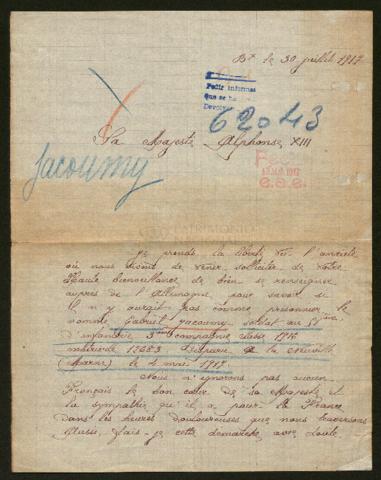 Bx le 30 juillet 1917
Pedir informes
que se ha
62043
Sa Majesté Alphonse XIII
Jacoumy
e.a.e.
Je prends la liberté vu l'anxiété
où nous de venir solliciter de votre
Haute bienveillance de bien se renseigner
auprès de l'Allemagne pour savoir si
il n'y aurait pas comme prisonnier le
nommé Gabriel Jacoumy soldat au
d'infanterie 3 compagnie classe 1916
matricule Disparu à la Neuville
(Marne) le 4 mai 1917
Nous n'ignorons pas aucun
Français le bon cœur de sa Majesté et
la sympathie qu'il a pour la France
dans les heures douloureuses que nous traversons
Aussi fais-je cette démarche avec toute